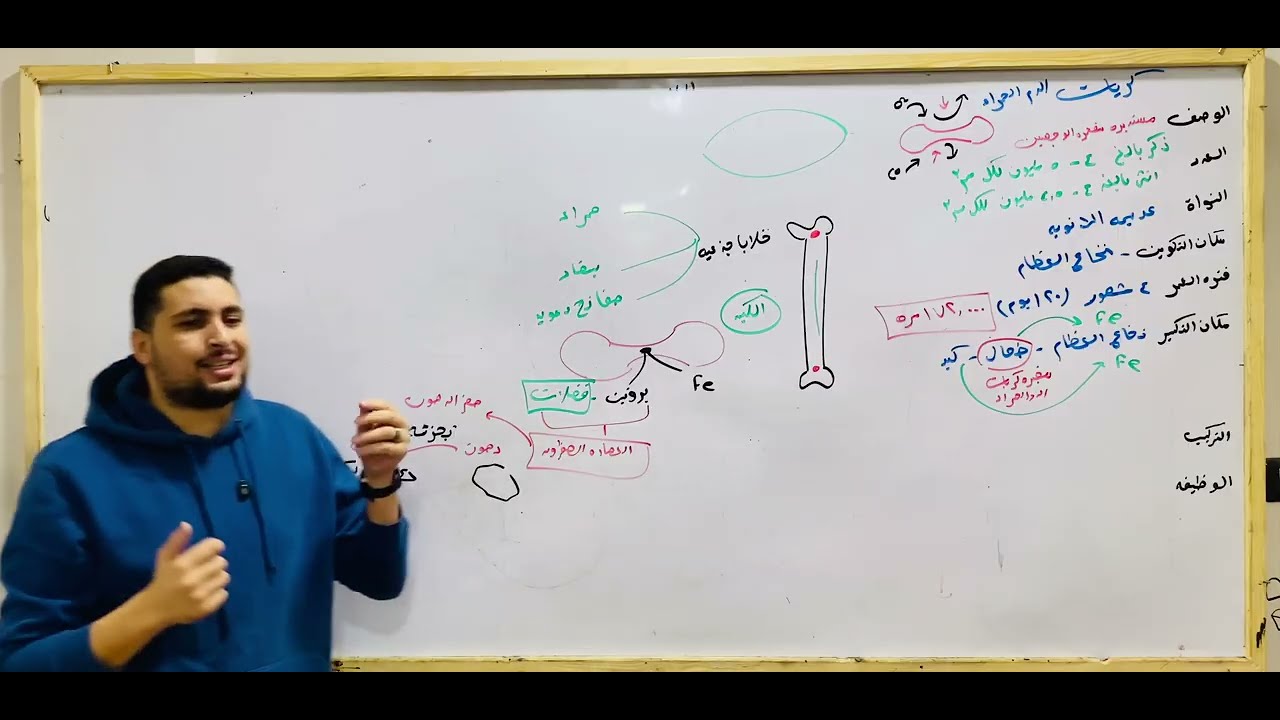 كريات الدم الحمراء
الوصف مستديره مقعره الوجهين
العدد ذكر بالغ ٤ - ٥ مليون لكل مم٣
انثى بالغه ٤ - ٤,٥ مليون لكل مم٣
النواة عديمه الانويه
مكان التكوين - نخاع العظام
فتره العمر ٤ شهور (١٢٠ يوم) ١٧٢,٠٠٠ مره
Fe
مكان التكسير نخاع العظام - طحال - كبد
Fe
مقبره كريات
الدم الحمراء
التركيب
الوظيفه
خلايا جذعيه
حمراء
بيضاء
صفائح دمويه
الكبد
Fe
بروتين - فضلات
العصاره الصفراويه
هضم الدهون
دهون